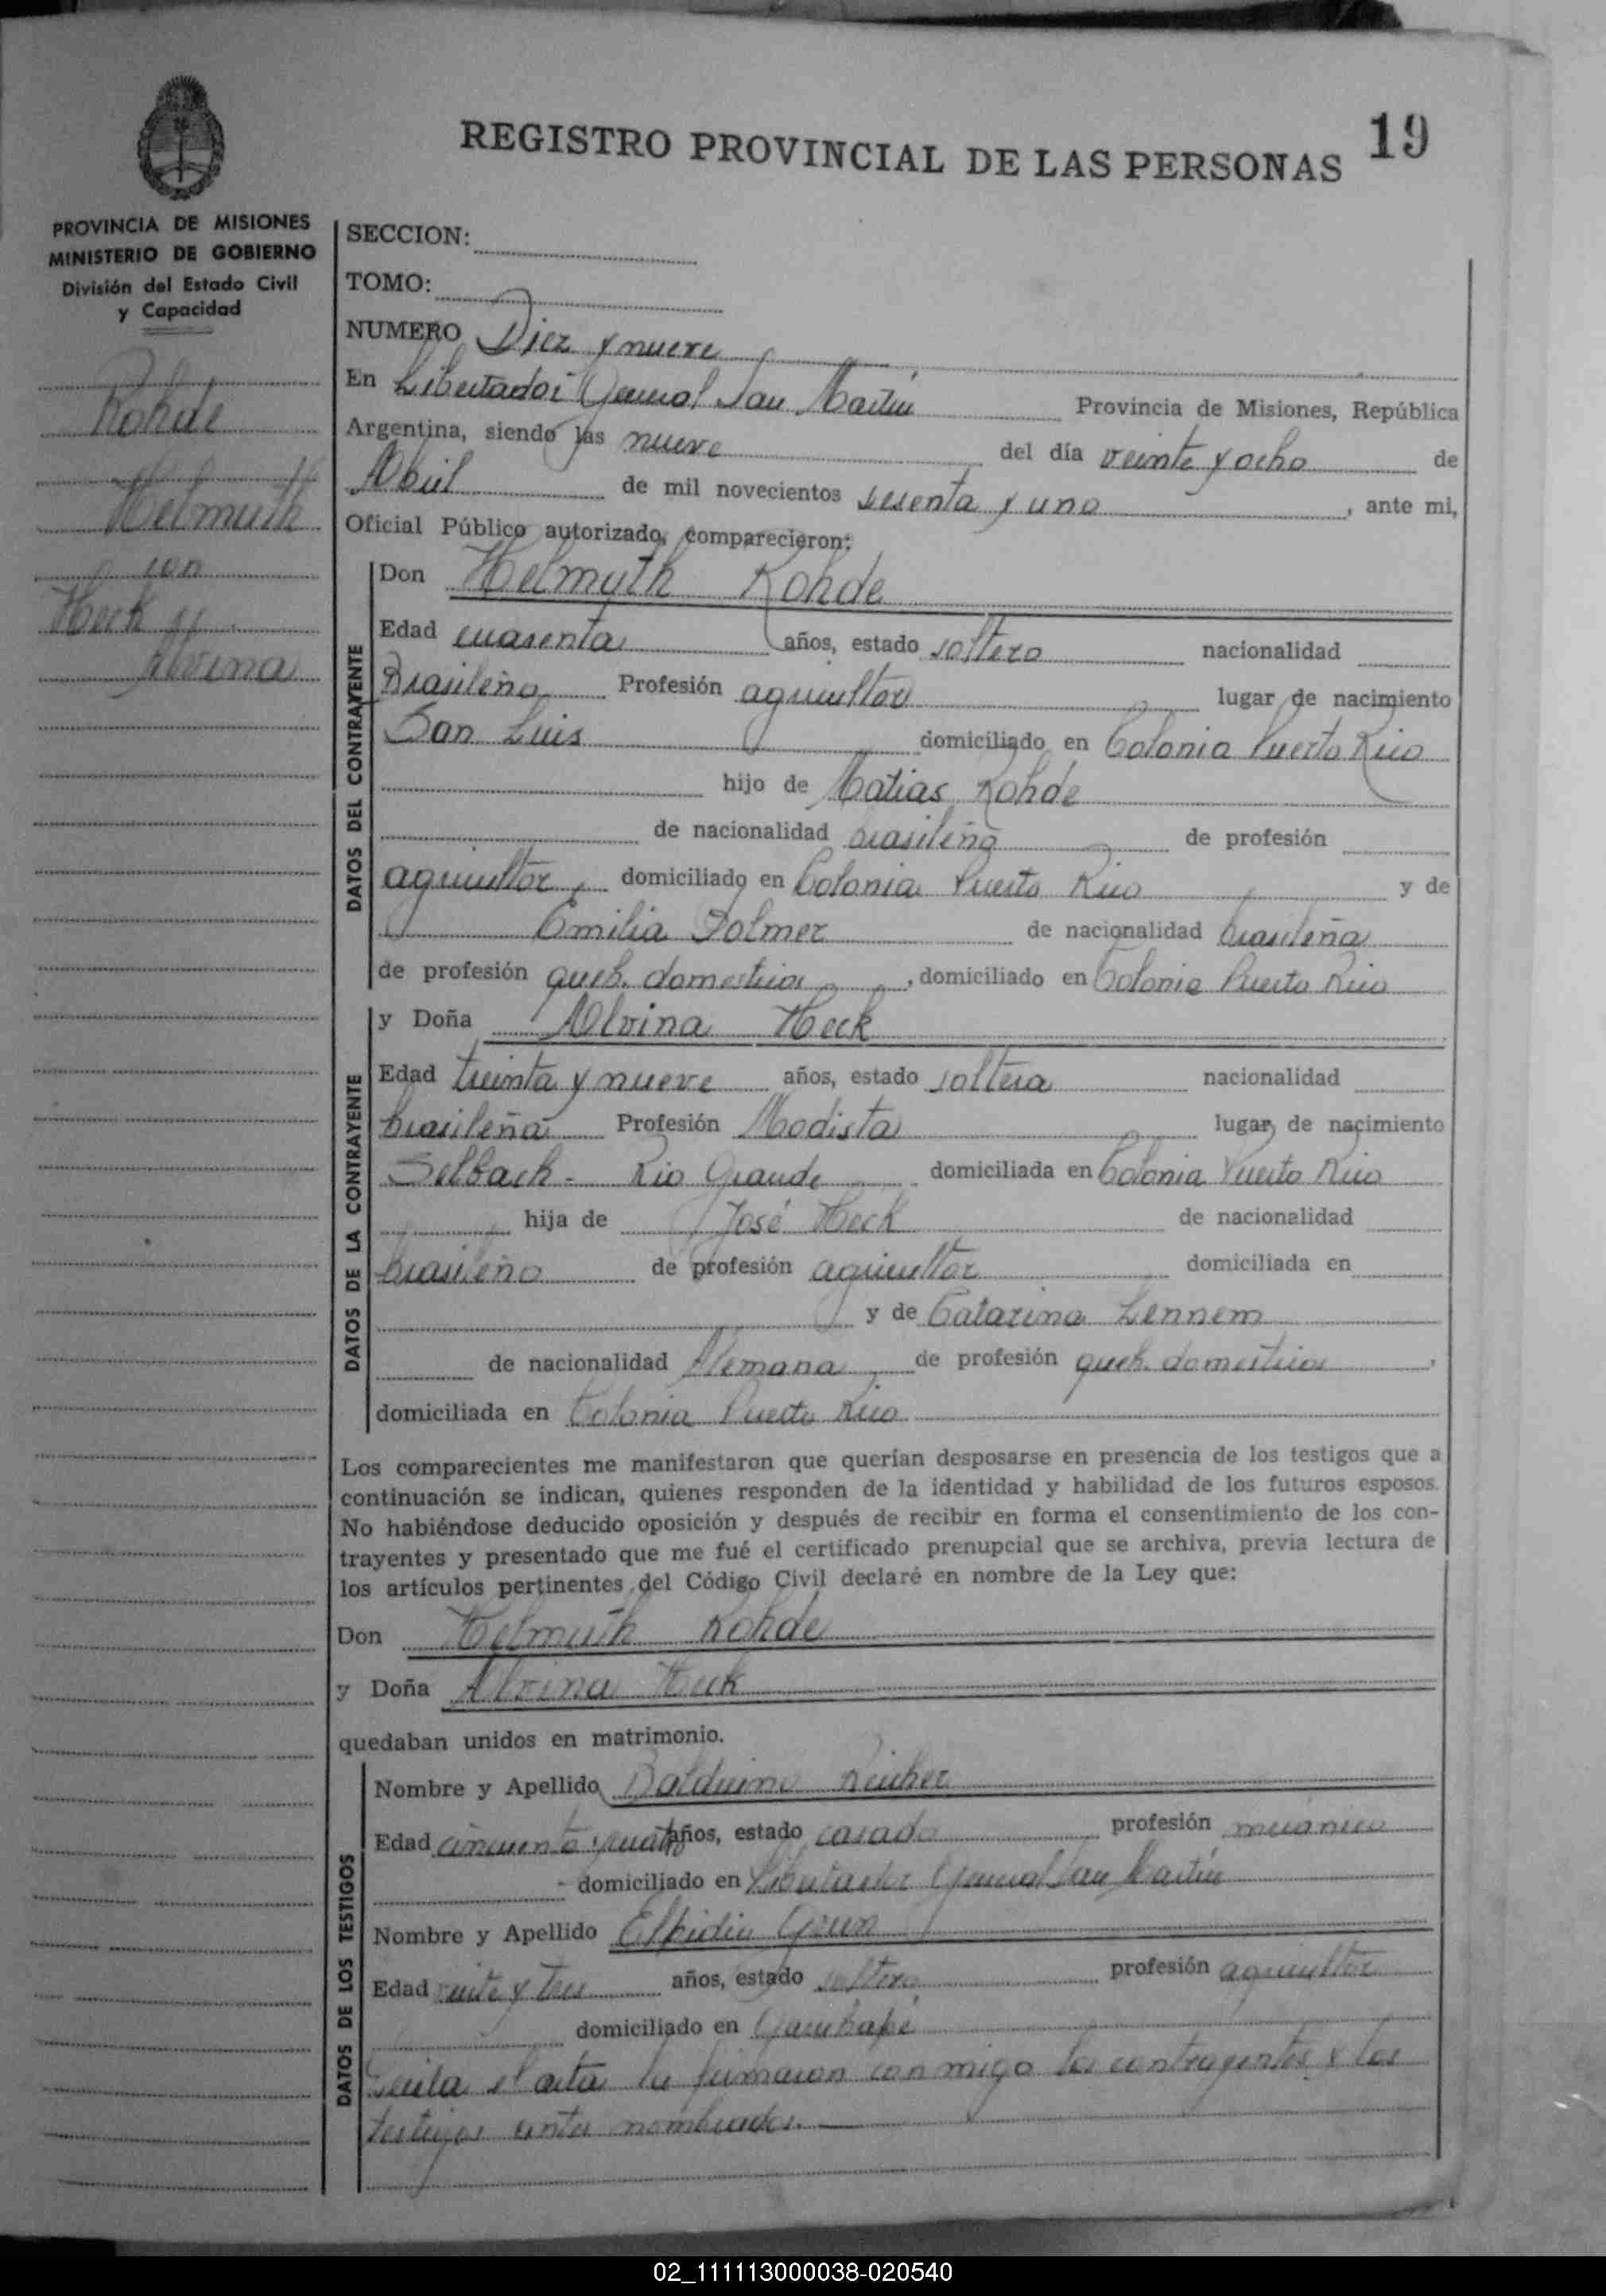 REGISTRO PROVINCIAL DE LAS PERSONAS 19
PROVINCIA DE MISIONES
MINISTERIO DE GOBIERNO
División del Estado Civil
y Capacidad
Rohde
Helmuth
con
Heck
Alvina
SECCION:
TOMO:
NUMERO Diez y nueve
En Libertador General San Martín Provincia de Misiones, República
Argentina, siendo las nueve del día veinte y ocho de
Abril de mil novecientos sesenta y uno, ante mi,
Oficial Público autorizado, comparecieron:
DATOS DEL CONTRAYENTE
Don Helmuth Rohde
Edad cuarenta años, estado soltero nacionalidad
Brasileño Profesión agricultor lugar de nacimiento
San Luis domiciliado en Colonia Puerto Rico
hijo de Matias Rohde
de nacionalidad brasileña de profesión
agricultor, domiciliado en Colonia Puerto Rico y de
Emilia Folmer de nacionalidad brasileña
de profesión queh. domesticos, domiciliado en Colonia Puerto Rico
DATOS DE LA CONTRAYENTE
y Doña Alvina Heck
Edad treinta y nueve años, estado soltera nacionalidad
brasileña Profesión Modista lugar de nacimiento
Selbach - Rio Grande domiciliada en Colonia Puerto Rico
hija de José Heck de nacionalidad
brasileño de profesión agricultor domiciliada en
y de Catarina Lennem
de nacionalidad Alemana de profesión queh. domesticos,
domiciliada en Colonia Puerto Rico
Los comparecientes me manifestaron que querían desposarse en presencia de los testigos que a
continuación se indican, quienes responden de la identidad y habilidad de los futuros esposos.
No habiéndose deducido oposición y después de recibir en forma el consentimiento de los con-
trayentes y presentado que me fué el certificado prenupcial que se archiva, previa lectura de
los artículos pertinentes del Código Civil declaré en nombre de la Ley que:
Don Helmuth Rohde
y Doña Alvina Heck
quedaban unidos en matrimonio.
DATOS DE LOS TESTIGOS
Nombre y Apellido Balduino Reicher
Edad cincuenta y cuatro años, estado casado profesión mecánico
- domiciliado en Libertador General San Martín
Nombre y Apellido Elpidio Grun
Edad veinte y tres años, estado soltero profesión agricultor
domiciliado en Garuhapé
Leida el acta la firmaron conmigo los contrayentes y los
testigos antes nombrados.—
02_111113000038-020540